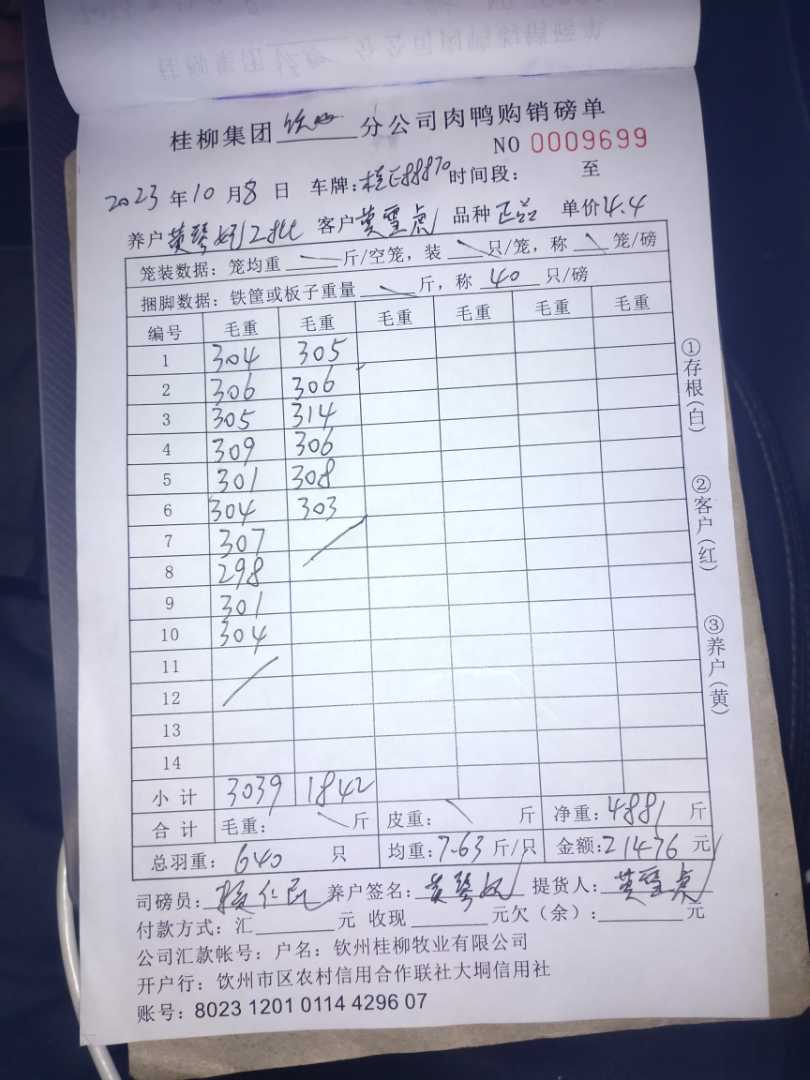 桂柳集团 钦州 分公司肉鸭购销磅单
NO 0009699
2023 年 10 月 8 日 车牌: 桂E88870 时间段: 至
养户 黄琴 12批 客户 黄雪虎 品种 正品 单价 4.4
笼装数据: 笼均重 \ 斤/空笼, 装 \ 只/笼, 称 \ 笼/磅
捆脚数据: 铁筐或板子重量 \ 斤, 称 40 只/磅
编号 毛重 毛重 毛重 毛重 毛重 毛重
1 304 305
2 306 306
3 305 314
4 309 306
5 301 308
6 304 303
7 307 /
8 298
9 301
10 304
11 /
12
13
14
小计 3039 1842
合计 毛重: \ 斤 皮重: \ 斤 净重: 4881 斤
总羽重: 640 只 均重: 7.63 斤/只 金额: 21476 元
司磅员: 养户签名: 黄琴 提货人: 黄雪虎
付款方式: 汇 元 收现 元欠(余): 元
公司汇款帐号: 户名: 钦州桂柳牧业有限公司
开户行: 饮州市区农村信用合作联社大垌信用社
账号: 8023 1201 0114 4296 07
①存根(白)
②客户(红)
③养户(黄)